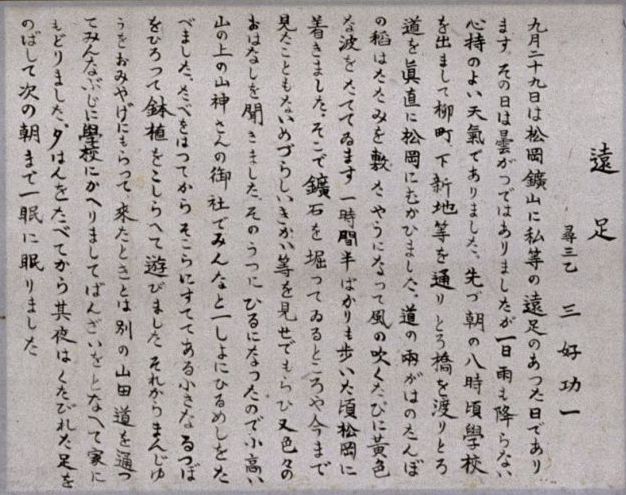 遠足
尋三乙 三好功一
九月二十九日は松岡鑛山に私等の遠足のあつた日であり
ます。その日は曇がつではありましたが一日雨も降らない
心持のよい天氣でありました、先づ朝の八時頃學校
を出まして柳町、下新地等を通りとろ橋を渡りとろ
道を眞直に松岡にむかひました、道の兩がはのたんぼ
の稻はたたみを敷たやうになって風の吹くたびに黃色
な波をたててゐます一時間半ばかりも歩いた頃松岡に
着きました。そこで鑛石を堀つてゐるところや今まで
見たこともないめづらしいきかい等を見せてもらひ又色々の
おはなしを聞きました、そのうつにひるになつたので小高い
山の上の山神さんの御社でみんなと一しよにひるめしをた
べました、たべをはつてから そこらにすててある小さなるつぼ
をひろつて鉢植をこしらへて遊びました それからまんじゆ
うをおみやげにもらって來たときとは別の山田道を通つ
てみんなぶじに學校にかへりましてばんざいをとなへて家に
もどりました、夕はんをたべてから其夜はくたびれた足を
のばして次の朝まで一眠に眠りました